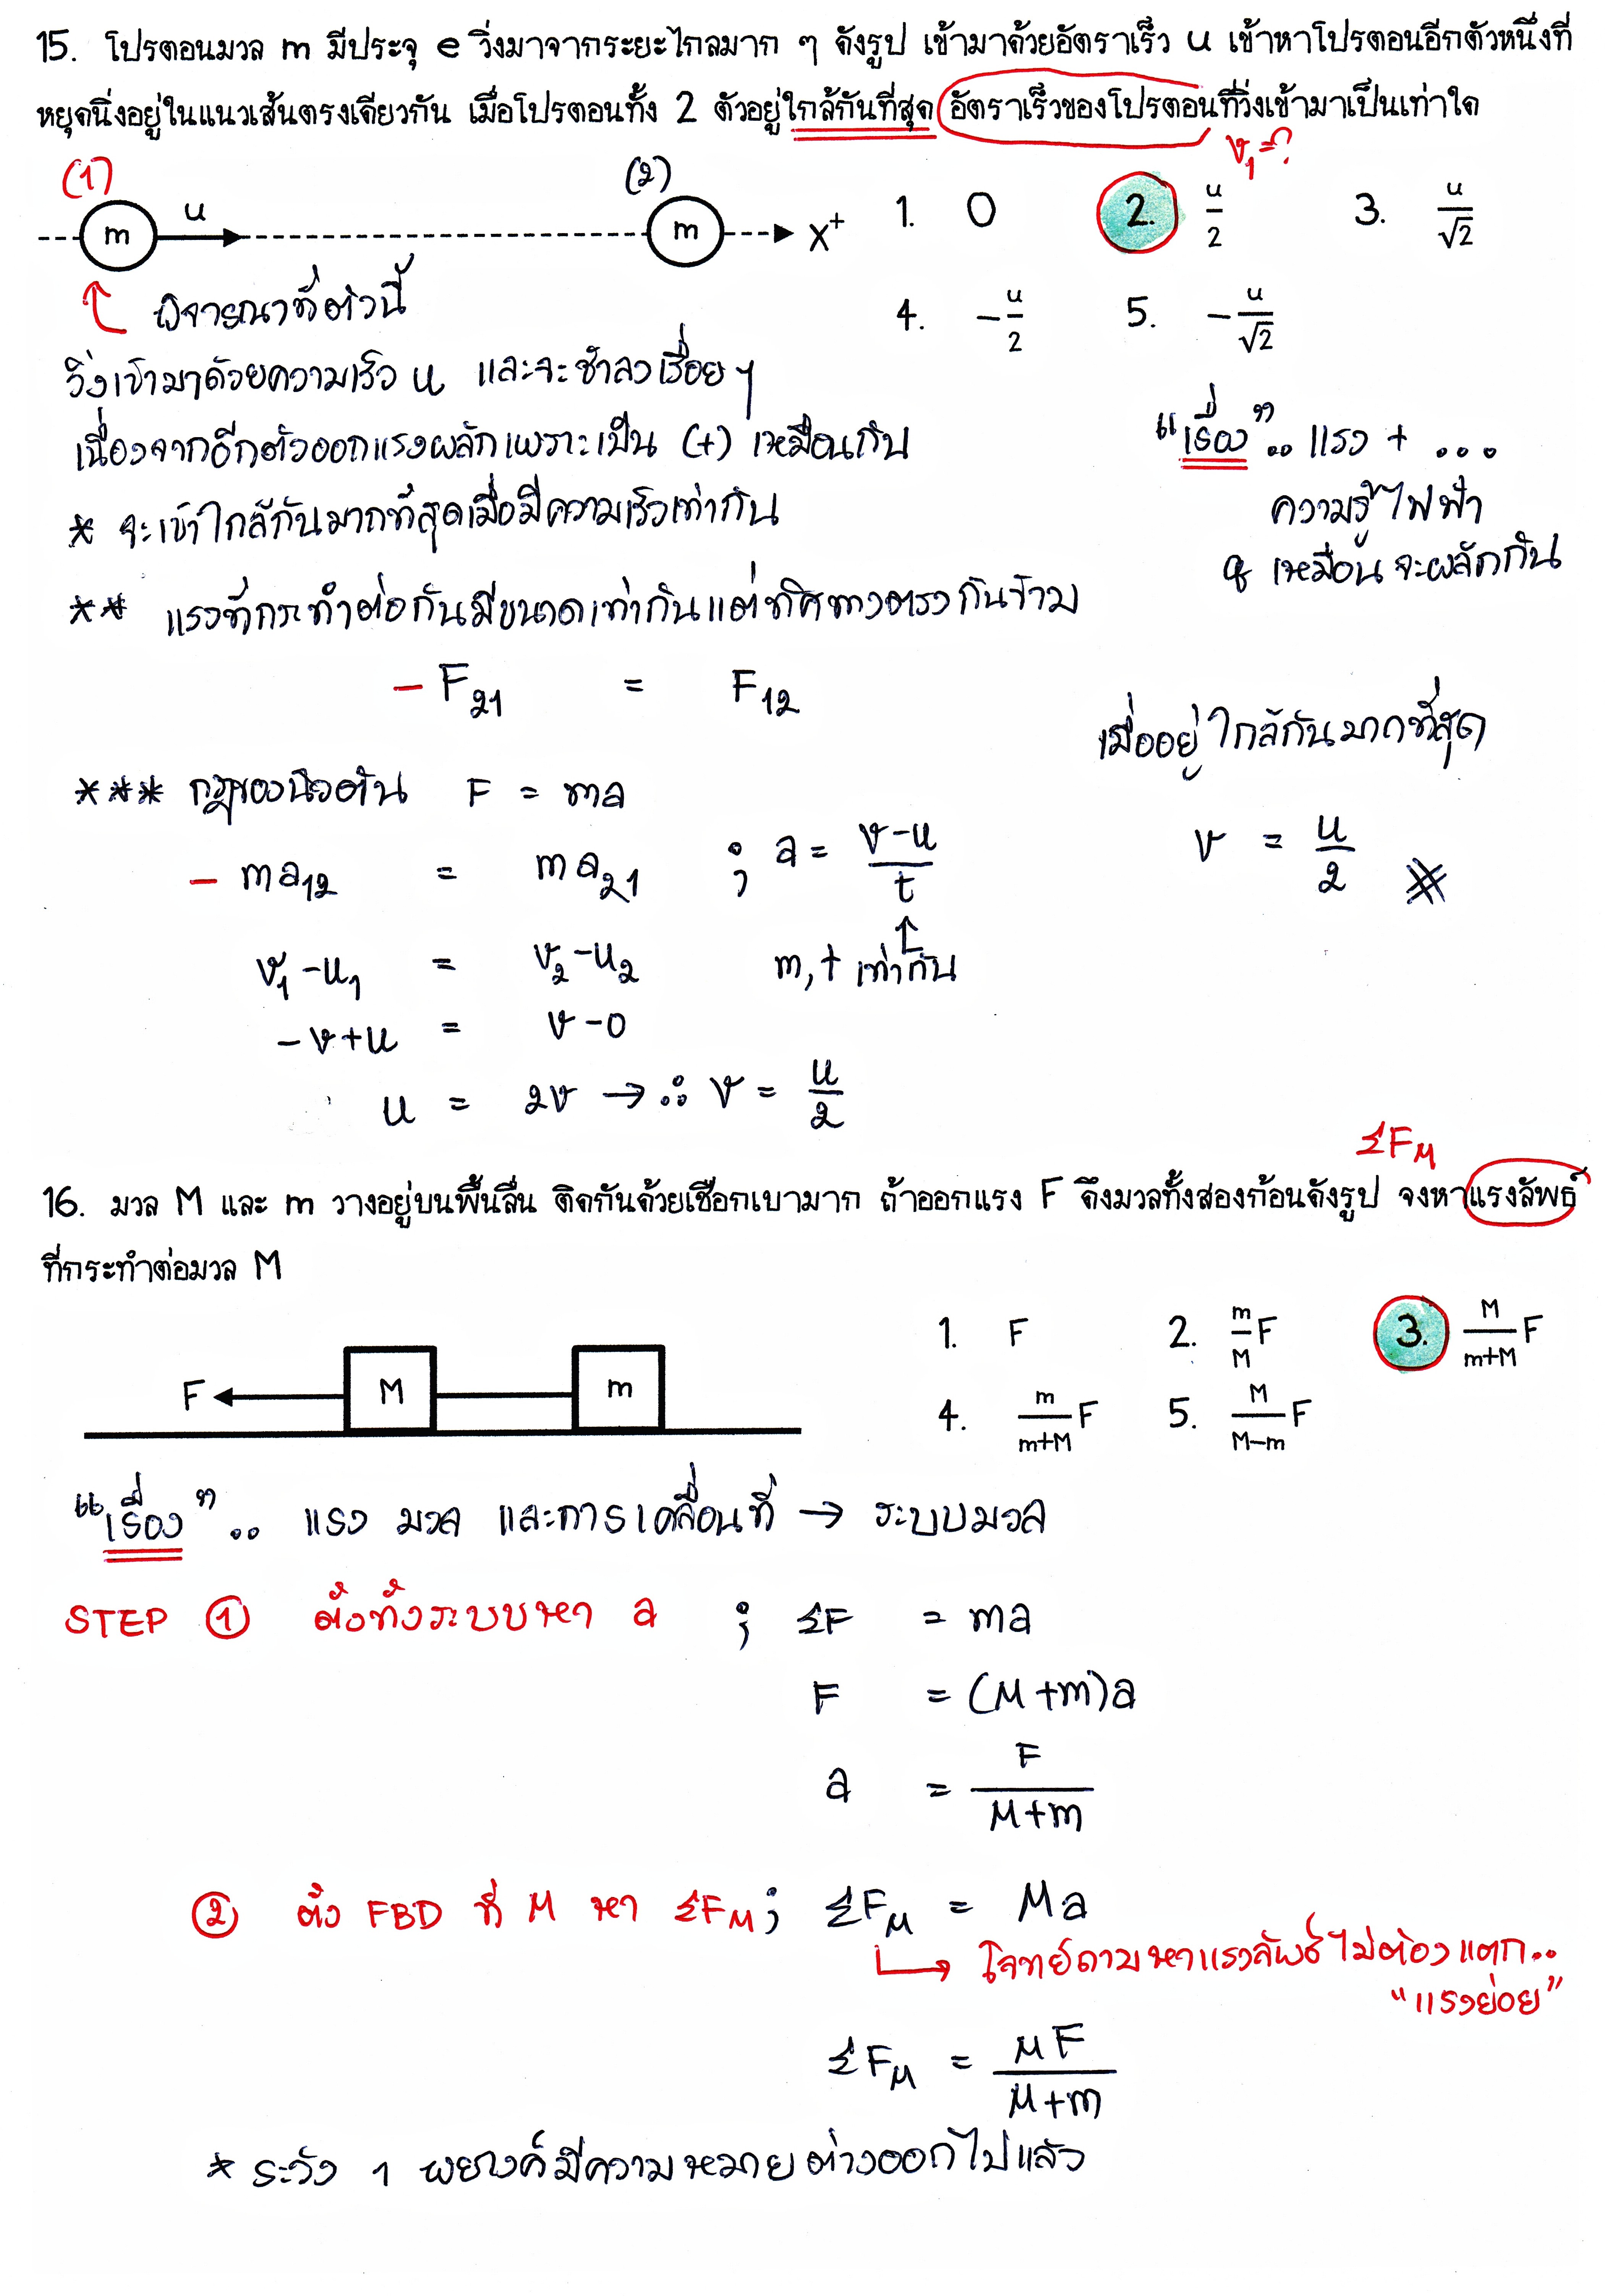 15. โปรตอนมวล m มีประจุ e วิ่งมาจากระยะไกลมาก ๆ ดังรูป เข้ามาด้วยอัตราเร็ว u เข้าหาโปรตอนอีกตัวหนึ่งที่
หยุดนิ่งอยู่ในแนวเส้นตรงเดียวกัน เมื่อโปรตอนทั้ง 2 ตัวอยู่ใกล้กันที่สุด อัตราเร็วของโปรตอนที่วิ่งเข้ามาเป็นเท่าใด
v₁ = ?
(1) (2)
m u m x⁺
1. 0 2. u/2 3. u/√2
4. -u/2 5. -u/√2
พิจารณาที่ตัวนี้
วิ่งเข้ามาด้วยความเร็ว u และจะช้าลงเรื่อย ๆ
เนื่องจากอีกตัวออกแรงผลักเพราะเป็น (+) เหมือนกัน
* จะเข้าใกล้กันมากที่สุดเมื่อมีความเร็วเท่ากัน
** แรงที่กระทำต่อกันมีขนาดเท่ากันแต่ทิศทางตรงกันข้าม
"เรื่อง".. แรง + ...
ความรู้ไฟฟ้า
q เหมือนจะผลักกัน
-F₂₁ = F₁₂
*** กฎของนิวตัน F = ma
-ma₁₂ = ma₂₁ ; a = (v-u)/t
v₁-u₁ = v₂-u₂ m,t เท่ากัน
-v+u = v-0
u = 2v → ∴ v = u/2
เมื่ออยู่ใกล้กันมากที่สุด
v = u/2 #
ΣF_M
16. มวล M และ m วางอยู่บนพื้นลื่น ติดกันด้วยเชือกเบามาก ถ้าออกแรง F ดึงมวลทั้งสองก้อนดังรูป จงหาแรงลัพธ์
ที่กระทำต่อมวล M
F M m
1. F 2. m/M F 3. M/(m+M) F
4. m/(m+M) F 5. M/(M-m) F
"เรื่อง".. แรง มวล และการเคลื่อนที่ → ระบบมวล
STEP ① ตั้งทั้งระบบหา a ; ΣF = ma
F = (M+m)a
a = F/(M+m)
② ตั้ง FBD ที่ M หา ΣF_M ; ΣF_M = Ma
โจทย์ถามหาแรงลัพธ์ไม่ต้องแตก..
"แรงย่อย"
ΣF_M = MF/(M+m)
* ระวัง 1 พยางค์มีความหมายต่างออกไปแล้ว